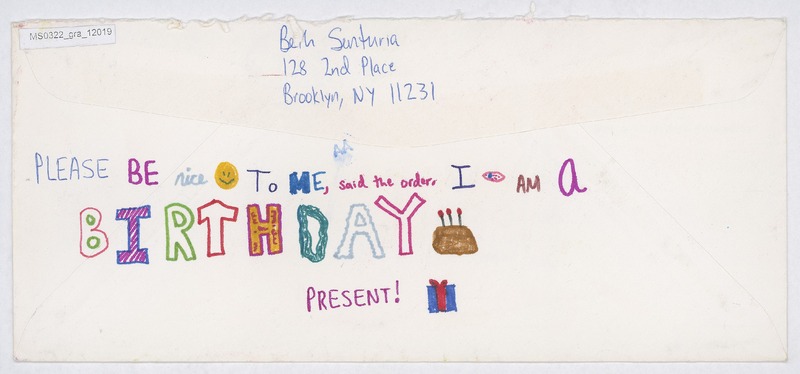 MS0322_gra_12019
Beth Santuria
128 2nd Place
Brooklyn, NY 11231
PLEASE BE nice TO ME, said the order, I AM A
BIRTHDAY
PRESENT!